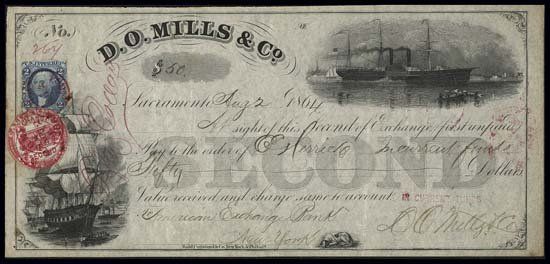 No.
264
D.O. MILLS & Co.
$50.
Sacramento Aug 2 1864
At sight of this Second of Exchange, first unpaid
Pay to the order of E. in current funds
SECOND
Fifty Dollars
Value received and charge same to account
IN CURRENT FUNDS
American Exchange Bank D O Mills & Co
New York